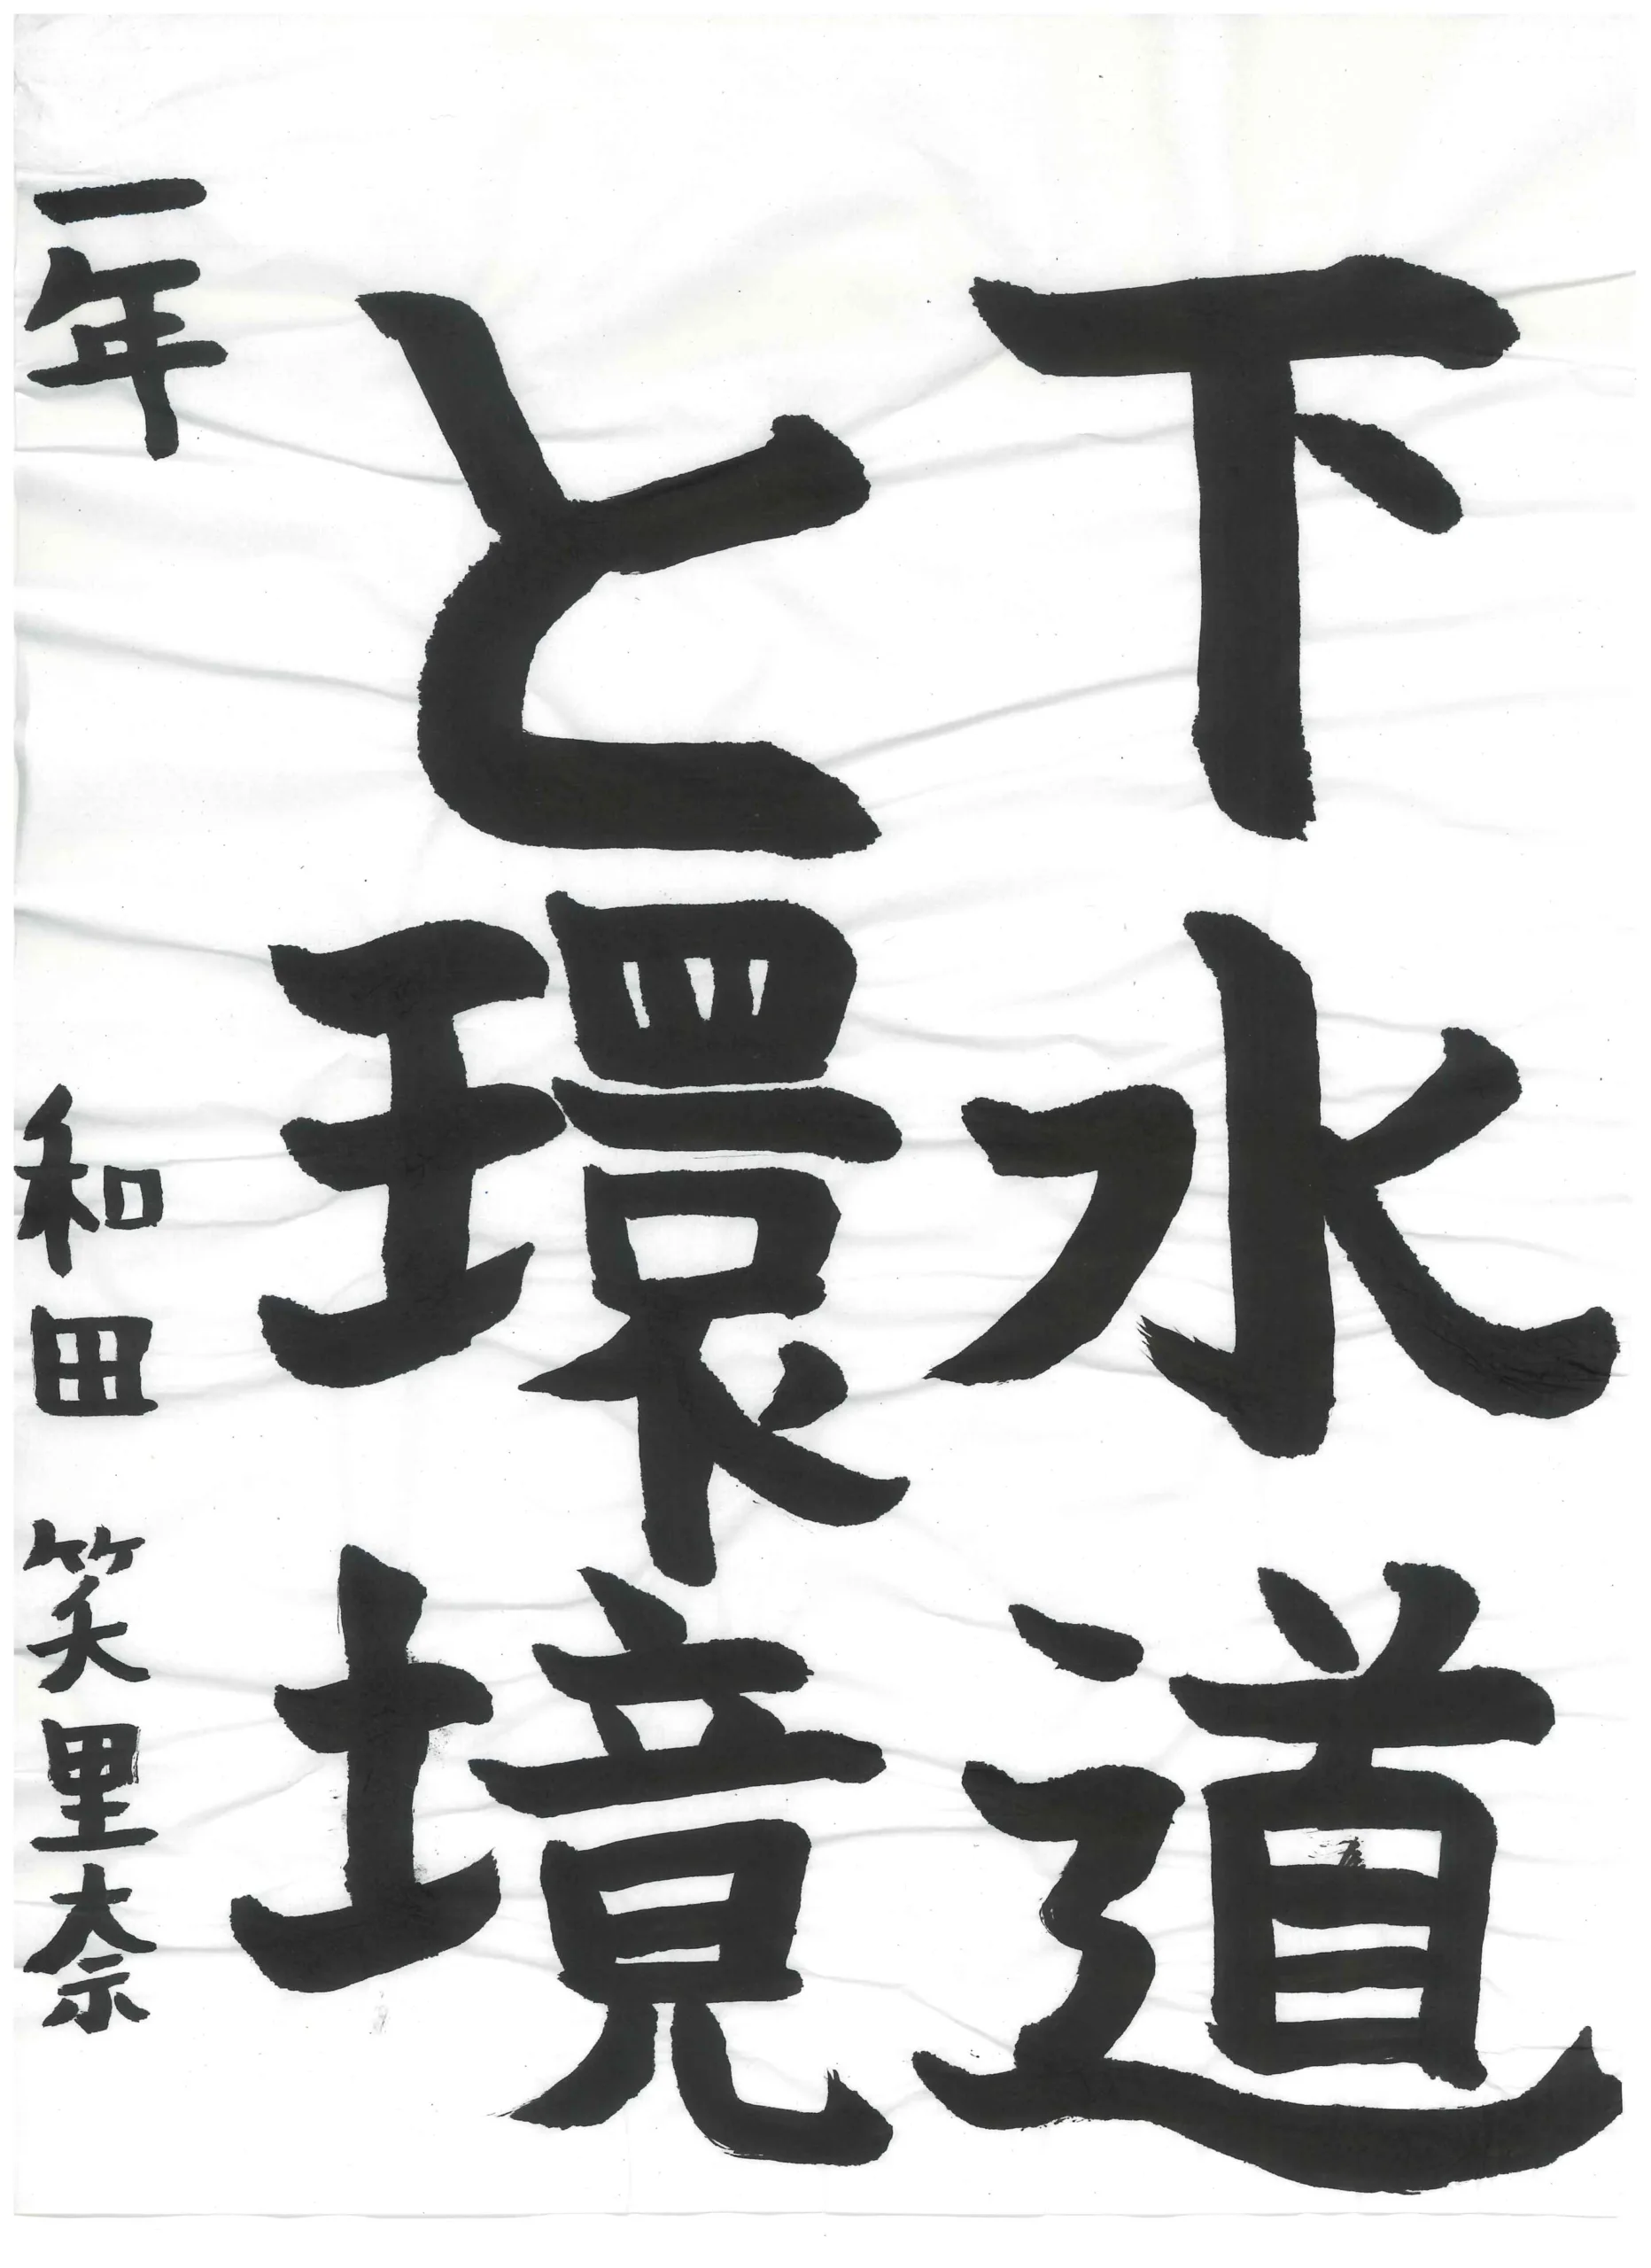 下水道
と環境
一年 和田 笑里奈